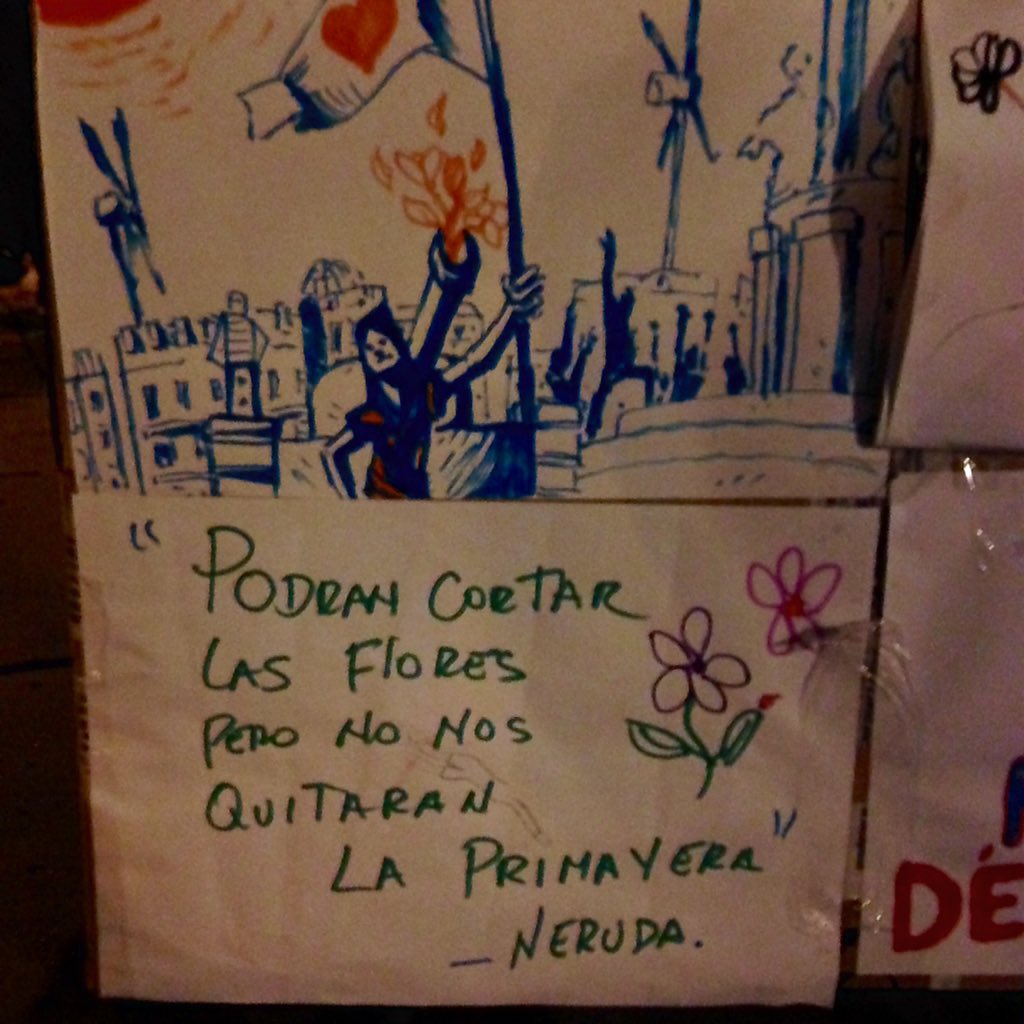 " PODRAN CORTAR
LAS FlORES
PERO NO NOS
QUITARAN
LA PRIMAVERA "
_ NERUDA.
DÉ